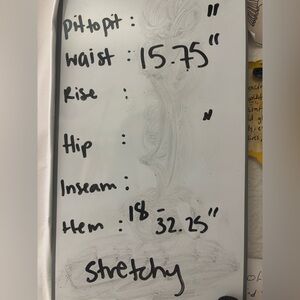 pit to pit : "
waist : 15.75"
Rise :
Hip : "
Inseam :
Hem : 18 - 32.25"
stretchy